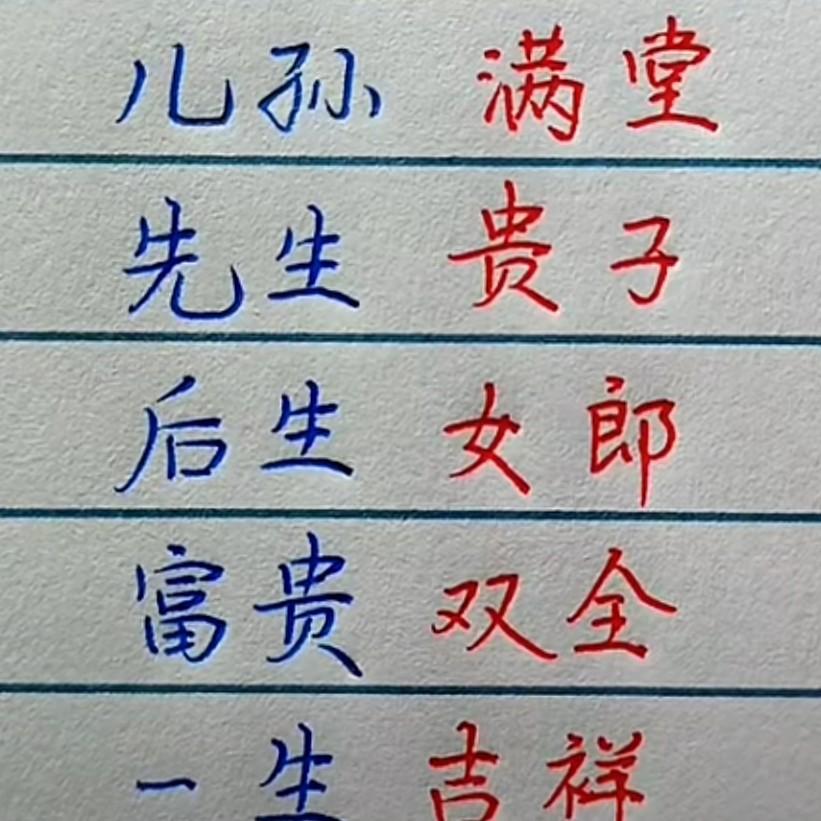 儿孙 满堂
先生 贵子
后生 女郎
富贵 双全
一生 吉祥